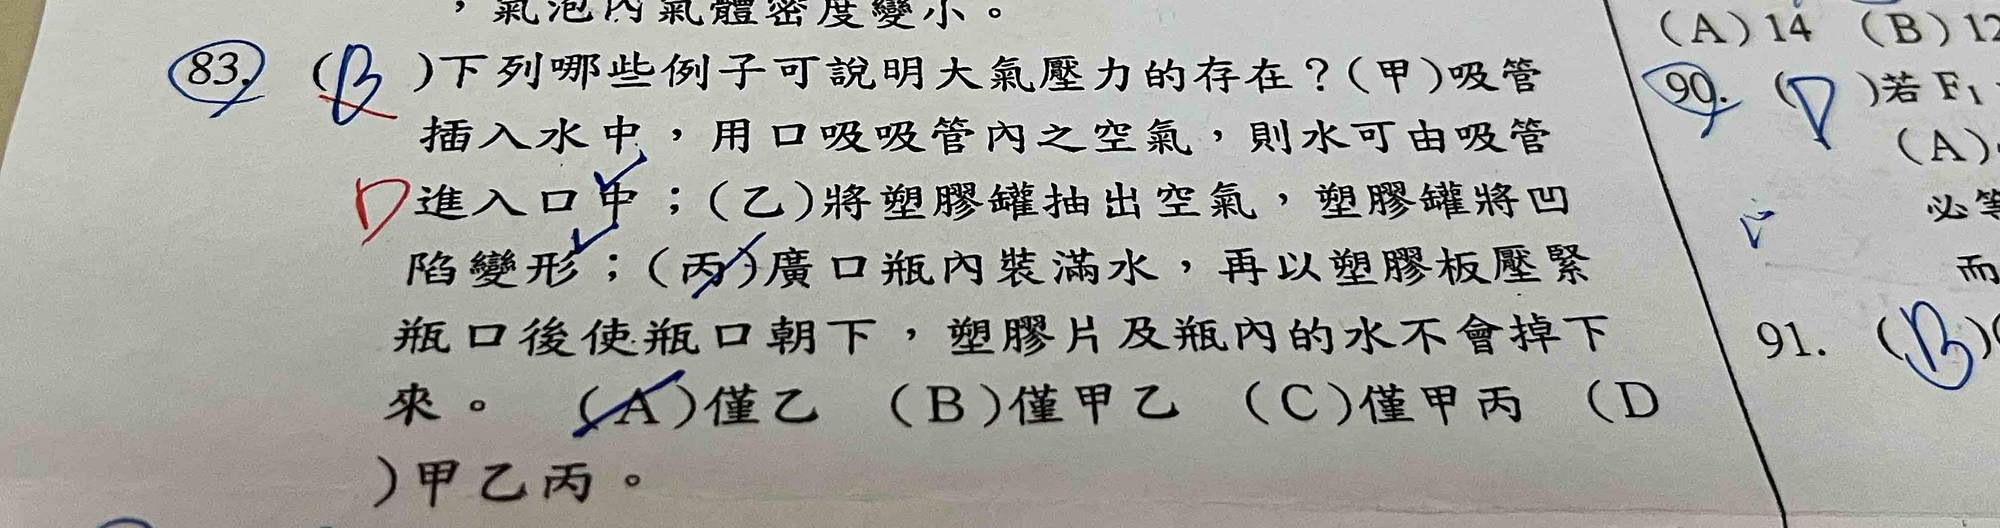 ，氣泡內氣體密度變小。
83. (B)下列哪些例子可說明大氣壓力的存在？(甲)吸管
插入水中，用口吸吸管內之空氣，則水可由吸管
D進入口中；(乙)將塑膠罐抽出空氣，塑膠罐將凹
陷變形；(丙)廣口瓶內裝滿水，再以塑膠板壓緊
瓶口後使瓶口朝下，塑膠片及瓶內的水不會掉下
來。 (A)僅乙 (B)僅甲乙 (C)僅甲丙 (D
)甲乙丙。
(A)14 (B)12
90. (D)若 F₁
(A)
必等
而
91. (B)(